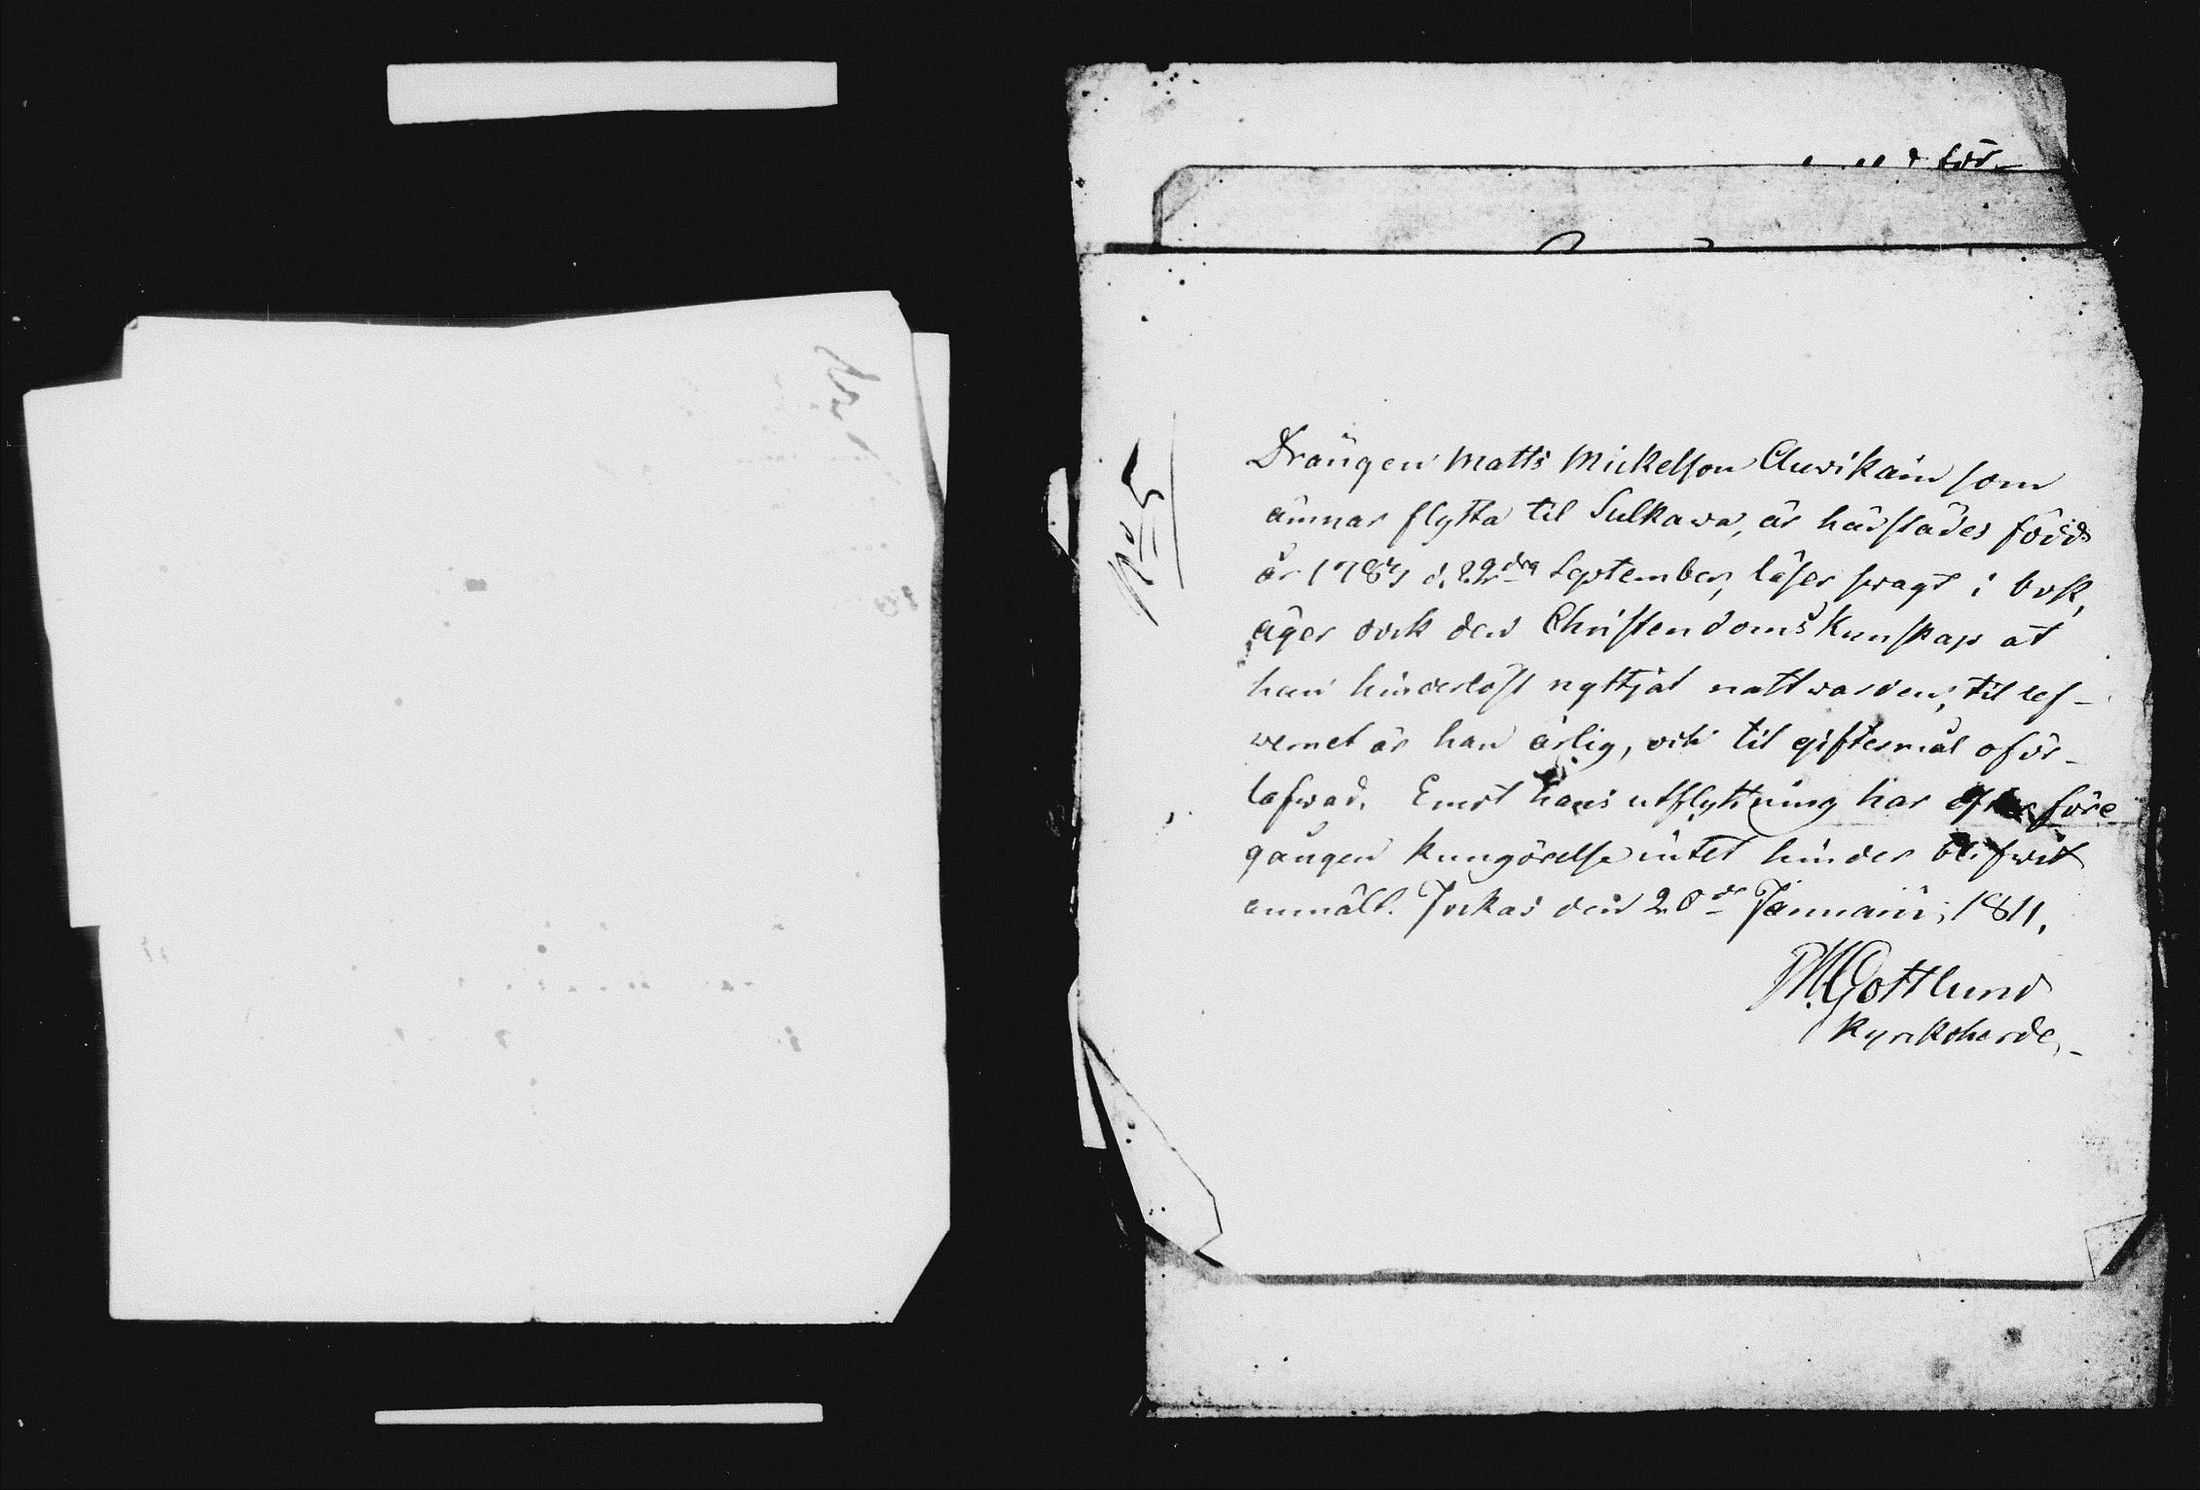 för
No 5
Drängen Matts Mickelson Auvikain som
ämnar flytta til Sulkawa, är härstädes född
år 1787 d. 22dra September, läser swagt i bok,
äger dock den Christendoms Kunskap at
han hinderlöst nyttjat nattwarden, til lef-
wernet är han ärlig, och til giftermål oför-
lofwad. Emot hans utflyttning har efter före
gången kungörelse intet hinder blifwit
anmält. Jockas den 20de Januarii, 1811.
M. Gottlund
Kyrkoherde.